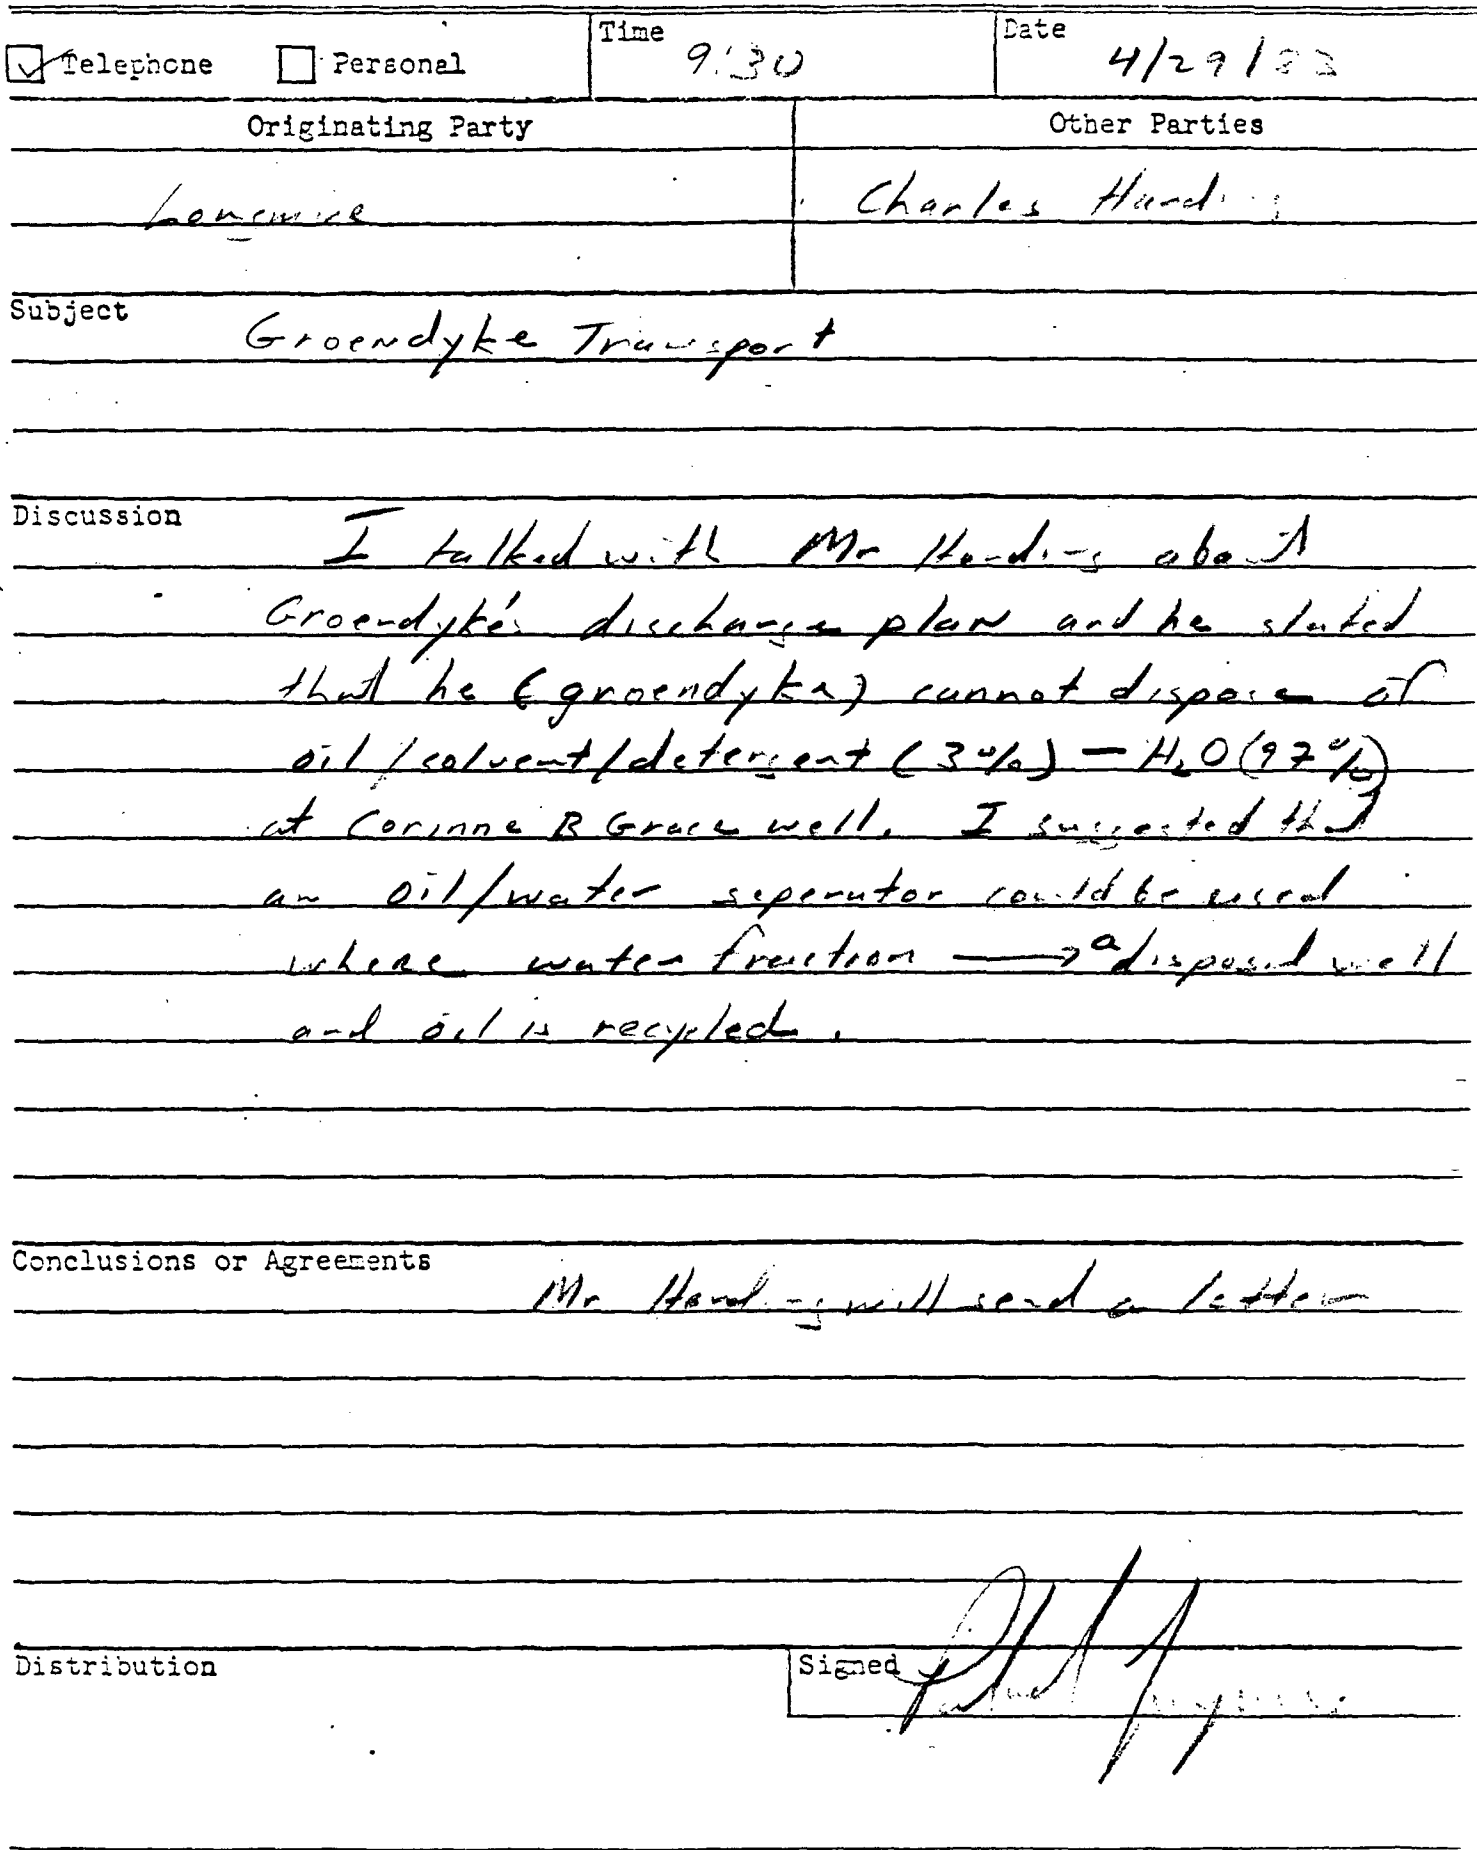 Telephone Personal Time 9:30 Date 4/29/83
Originating Party Other Parties
Longmire Charles Harding
Subject Groendyke Transport
Discussion I talked with Mr Harding about
Groendyke's discharge plan and he stated
that he (groendyke) cannot dispose of
oil/solvent/detergent (3%) — H₂O (97%)
at Corinne B Grace well. I suggested that
an oil/water seperator could be used
where water fraction → a disposal well
and oil is recycled.
Conclusions or Agreements Mr Harding will send a letter
Distribution Signed